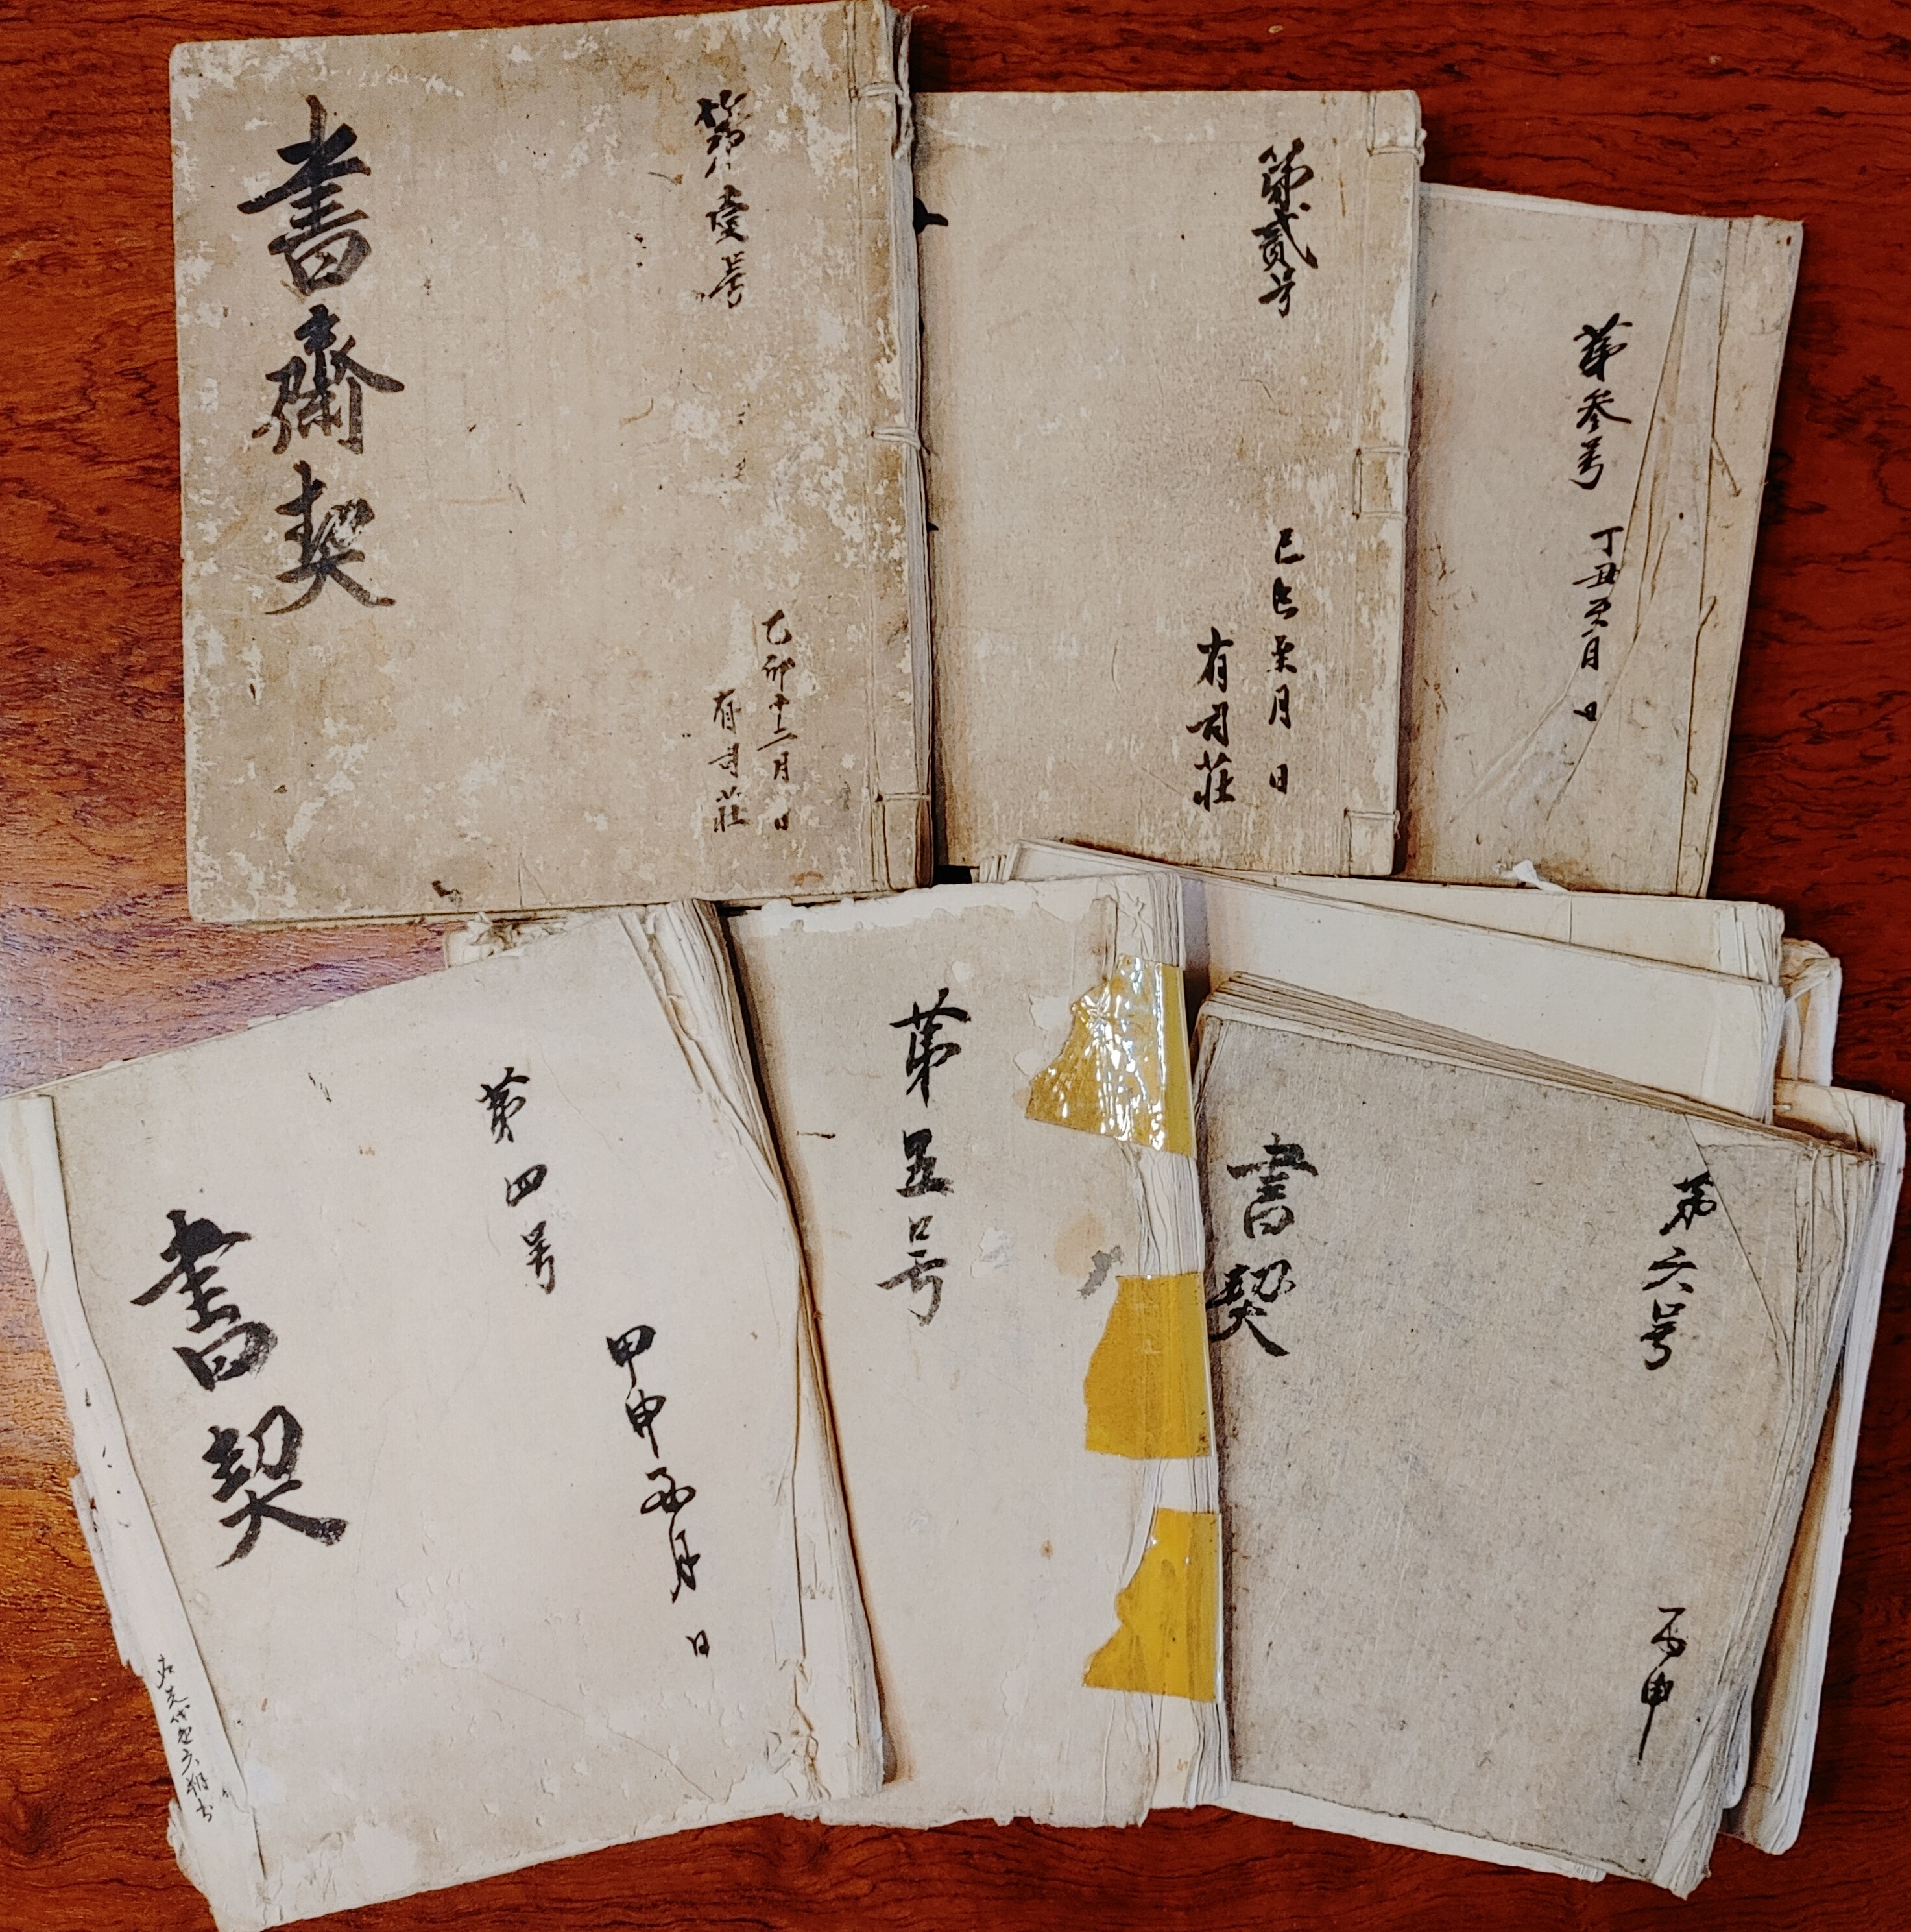 第壹号
乙卯十二月 日
有司莊
書齋契
第貳号
己巳至月 日
有司莊
第參号 丁丑至月 日
第四号
甲申至月 日
書契
第五号
第六号
丙申
書契